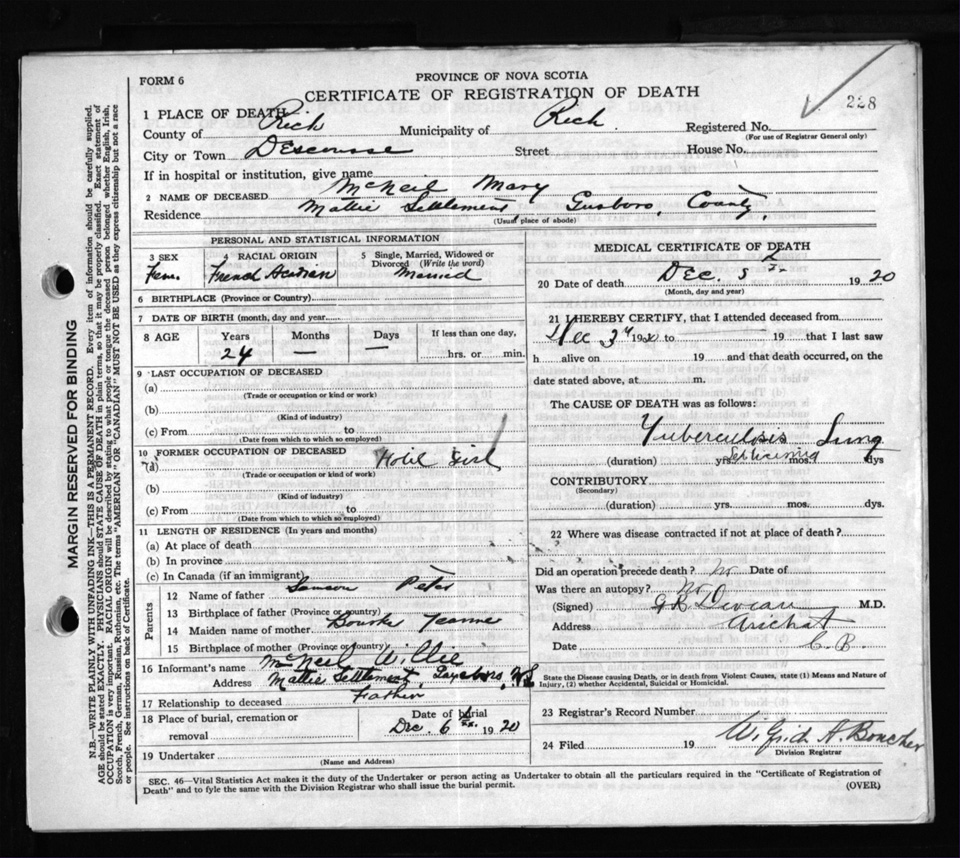 FORM 6
PROVINCE OF NOVA SCOTIA
CERTIFICATE OF REGISTRATION OF DEATH
228
1 PLACE OF DEATH
County of Rich Municipality of Rich. Registered No.
(For use of Registrar General only)
City or Town DEscousse Street House No.
If in hospital or institution, give name
2 NAME OF DECEASED McNeil Mary
Residence Mattie Settlement Gusboro, County,
(Usual place of abode)
PERSONAL AND STATISTICAL INFORMATION
3 SEX 4 RACIAL ORIGIN 5 Single, Married, Widowed or Divorced (Write the word)
Fem. French Acadian Married
6 BIRTHPLACE (Province or Country)
7 DATE OF BIRTH (month, day and year)
8 AGE Years Months Days If less than one day,
24 — — hrs. or min.
9 LAST OCCUPATION OF DECEASED
(a)
(Trade or occupation or kind or work)
(b)
(Kind of industry)
(c) From to
(Date from which to which so employed)
10 FORMER OCCUPATION OF DECEASED
(a) Girl
(Trade or occupation or kind or work)
(b)
(Kind of industry)
(c) From to
(Date from which to which so employed)
11 LENGTH OF RESIDENCE (In years and months)
(a) At place of death
(b) In province
(c) In Canada (if an immigrant)
Parents
12 Name of father Samson Peter
13 Birthplace of father (Province or country)
14 Maiden name of mother Bourke Jeanne
15 Birthplace of mother (Province or country)
16 Informant's name McNeil Willie
Address Mattie Settlement, Guysboro, N.S.
17 Relationship to deceased Father
18 Place of burial, cremation or removal Date of burial
Dec. 6 1920
19 Undertaker
(Name and Address)
MEDICAL CERTIFICATE OF DEATH
20 Date of death DEc. 5 1920
(Month, day and year)
21 I HEREBY CERTIFY, that I attended deceased from
Dec 3rd 1920 to 19 that I last saw
h alive on 19 and that death occurred, on the
date stated above, at m.
The CAUSE OF DEATH was as follows:
Tuberculosis Lung
(duration) yrs. mos. dys
CONTRIBUTORY
(Secondary)
(duration) yrs. mos. dys.
22 Where was disease contracted if not at place of death?
Did an operation precede death? No Date of
Was there an autopsy? No
(Signed) M.D.
Address Arichat
Date C. B.
State the Disease causing Death, or in death from Violent Causes, state (1) Means and Nature of Injury, (2) whether Accidental, Suicidal or Homicidal.
23 Registrar's Record Number
24 Filed 19 Wilfrid A. Boucher
Division Registrar
SEC. 46—Vital Statistics Act makes it the duty of the Undertaker or person acting as Undertaker to obtain all the particulars required in the "Certificate of Registration of
Death" and to fyle the same with the Division Registrar who shall issue the burial permit.
(OVER)
MARGIN RESERVED FOR BINDING
N.B.—WRITE PLAINLY WITH UNFADING INK—THIS IS A PERMANENT RECORD. Every item of information should be carefully supplied.
AGE should be stated EXACTLY. PHYSICIANS should STATE CAUSE OF DEATH in plain terms, so that it may be properly classified. Exact statement of
OCCUPATION is very important. RACIAL ORIGIN will be described by stating to what people or tongue the deceased person belonged whether English, Irish,
Scotch, French, German, Russian, Ruthenian, etc. The terms "AMERICAN" OR "CANADIAN" MUST NOT BE USED as they express citizenship but not a race
or people. See instructions on back of Certificate.